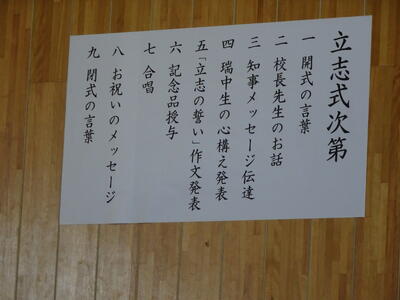 立志式次第
一 開式の言葉
二 校長先生のお話
三 知事メッセージ伝達
四 瑞中生の心構え発表
五 「立志の誓い」作文発表
六 記念品授与
七 合唱
八 お祝いのメッセージ
九 閉式の言葉